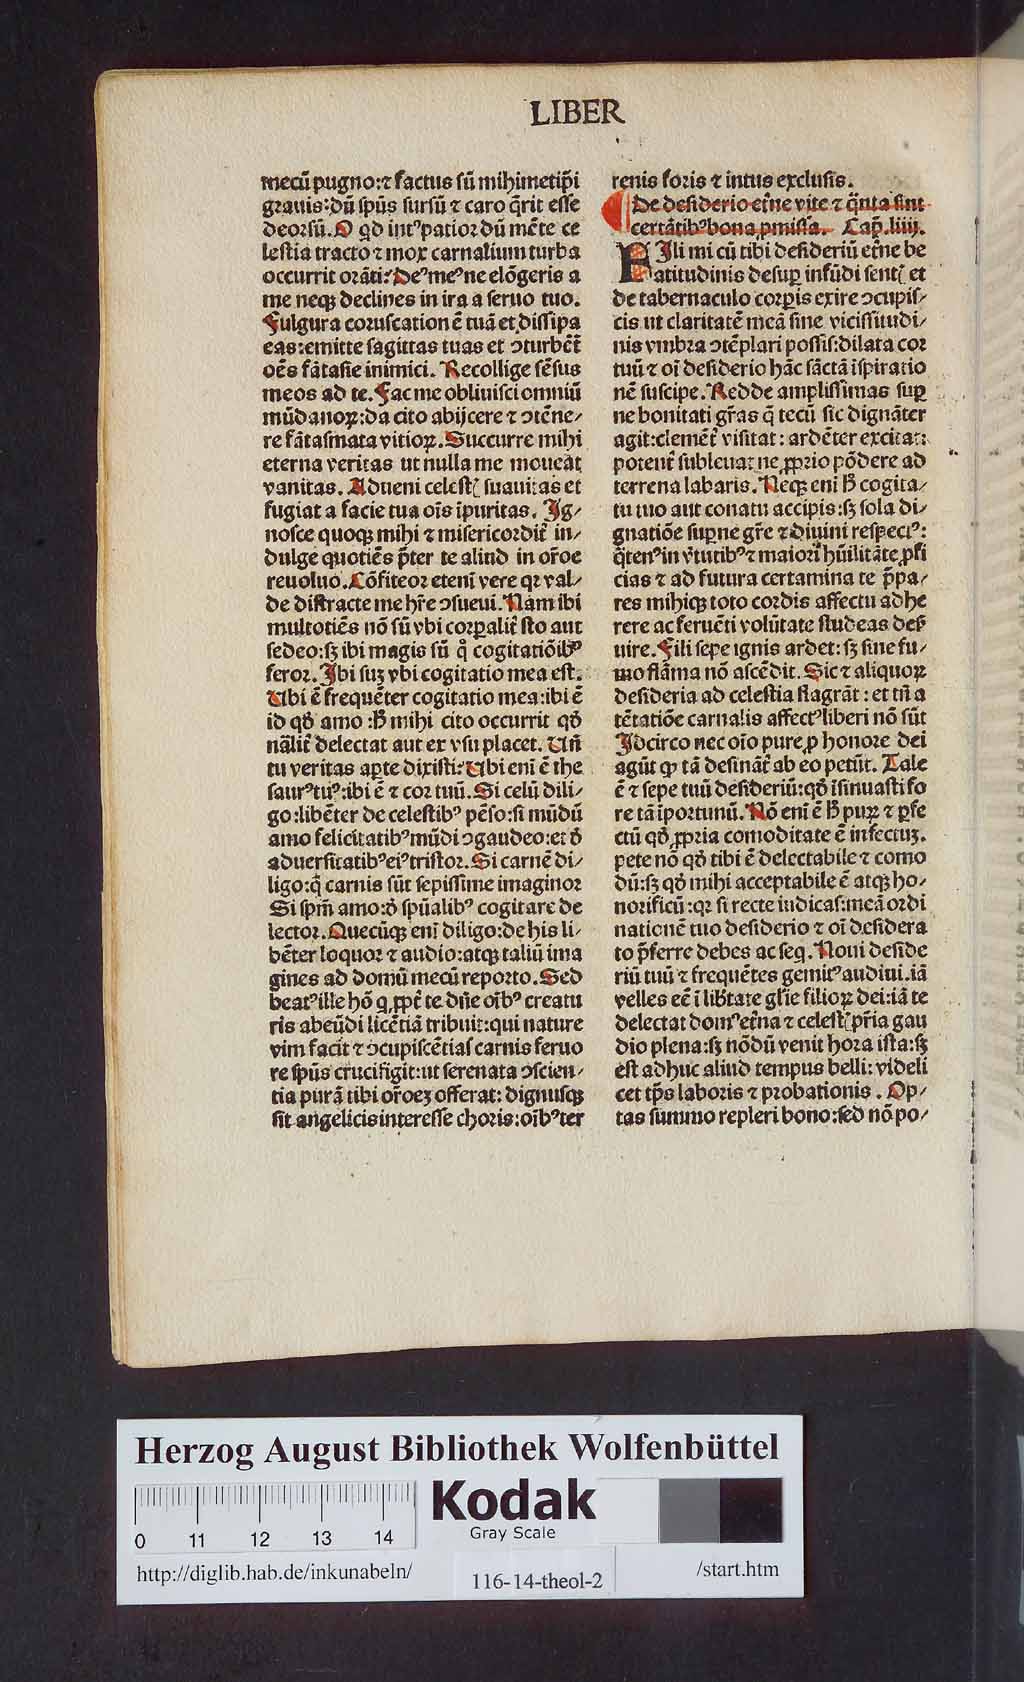 LIBER
mecū pugno:⁊ factus sū mihimetip̄i
grauis:dū sp̄us sursū ⁊ caro q̄rit esse
deorsū. O qd intꝰ patior dū mēte ce
lestia tracto ⁊ mox carnalium turba
occurrit orāti: Deꝰ meꝰ ne elōgeris a
me neqꝫ declines in ira a seruo tuo.
Fulgura coruscationē tuā et dissipa
eas:emitte sagittas tuas et ↄturbēt̄
oēs fātasie inimici. Recollige sēsus
meos ad te. Fac me obliuisci omniū
mūdanoꝝ:da cito abijcere ⁊ ↄtēne/
re fātasmata vitioꝝ. Succurre mihi
eterna veritas ut nulla me moueat
vanitas. Adueni celestꝭ suauitas et
fugiat a facie tua oīs īpuritas. Ig/
nosce quoqꝫ mihi ⁊ misericordit̄ in/
dulge quotiēs p̄ter te aliud in or̄oe
reuoluo. Cōfiteor etenī vere qꝛ val/
de distracte me hr̄e ↄsueui. Nam ibi
multotiēs nō sū vbi corꝑalit̄ sto aut
sedeo:sꝫ ibi magis sū q̊ cogitatiōibꝰ
feror. Ibi suꝫ vbi cogitatio mea est.
Ubi ē frequēter cogitatio mea:ibi ē
id qd̓ amo :h̓ mihi cito occurrit qd̓
nālit̄ delectat aut ex vsu placet. Un̄
tu veritas aꝑte dixisti: Ubi enī ē the
saurꝰ tuꝰ:ibi ē ⁊ cor tuū. Si celū dili/
go:libēter de celestibꝰ pēso:si mūdū
amo felicitatibꝰ mūdi ↄgaudeo:et d̓
aduersitatibꝰ eiꝰ tristor. Si carnē di/
ligo:q̄ carnis sūt sepissime imaginor
Si sp̄m amo:d̓ sp̄ualibꝰ cogitare de
lector. Quecūqꝫ enī diligo:de his li/
bēter loquor ⁊ audio:atqꝫ taliū ima
gines ad domū mecū reporto. Sed
beatꝰ ille hō q ꝓpt̄ te dn̄e oībꝰ creatu
ris abeūdi licētiā tribuit:qui nature
vim facit ⁊ ↄcupiscētias carnis feruo
re sp̄us crucifigit:ut serenata ↄscien/
tia purā tibi or̄oeꝫ offerat: dignusqꝫ
sit angelicis interesse choris:oībꝰ ter
renis foris ⁊ intus exclusis.
De desiderio et̄ne vite ⁊ q̄nta sint
certātibꝰ bona ꝓmissa. Cap̄. liiij.
FIli mi cū tibi desideriū et̄ne be
atitudinis desuꝑ infūdi sentꝭ et
de tabernaculo corꝑis exire ↄcupis/
cis ut claritatē meā sine vicissitudi/
nis vmbra ↄtēplari possis:dilata cor
tuū ⁊ oī desiderio hāc sāctā īspiratio
nē suscipe. Redde amplissimas suꝑ
ne bonitati gr̄as q̄ tecū sic dignāter
agit:clemēt̄ visitat: ardēter excitat:
potent̄ subleuat ne ꝓprio pōdere ad
terrena labaris. Neqꝫ enī h̓ cogita/
tu tuo aut conatu accipis:sꝫ sola di/
gnatiōe suꝑne gr̄e ⁊ diuini respectꝰ:
q̄tenꝰ in v̓tutibꝰ ⁊ maiori hūilitāte ꝓfi
cias ⁊ ad futura certamina te p̄pa/
res mihiqꝫ toto cordis affectu adhe
rere ac feruēti volūtate studeas des̓
uire. Fili sepe ignis ardet: sꝫ sine fu/
mo flāma nō ascēdit. Sic ⁊ aliquoꝝ
desideria ad celestia flagrāt : et tn̄ a
tētatiōe carnalis affectꝰ liberi nō sūt
Idcirco nec oīo pure ꝓ honore dei
agūt qd̓ tā desināt̄ ab eo petūt. Tale
ē ⁊ sepe tuū desideriū: qd̓ īsinuasti fo
re tā īportunū. Nō enī ē h̓ puꝝ ⁊ ꝑfe
ctū qd̓ ꝓpria comoditate ē infectuꝫ.
pete nō qd̓ tibi ē delectabile ⁊ como
dū:sꝫ qd̓ mihi acceptabile ē atqꝫ ho/
norificū :qꝛ si recte iudicas:meā ordi
nationē tuo desiderio ⁊ oī desidera
to p̄ferre debes ac seq. Noui deside
riū tuū ⁊ frequētes gemitꝰ audiui.iā
velles eē ī lib̓tate gl̓ie filioꝝ dei:iā te
delectat domꝰ et̄na ⁊ celestꝭ pr̄ia gau
dio plena:sꝫ nōdū venit hora ista:sꝫ
est adhuc aliud tempus belli: videli
cet tp̄s laboris ⁊ probationis . Op/
tas summo repleri bono:sed nō po/
Herzog August Bibliothek Wolfenbüttel
0 11 12 13 14
Kodak
Gray Scale
http://diglib.hab.de/inkunabeln/
116-14-theol-2
/start.htm